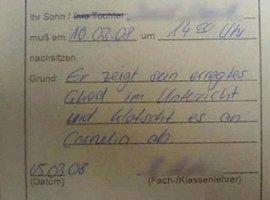 Ihr Sohn / ihre Tochter
muß am 10.03.08 um 14⁰⁰ Uhr
nachsitzen.
Grund: Er zeigt sein erregtes
Glied im Unterricht
und klatscht es an
Cornelia ab.
05.03.08
(Datum) (Fach-/Klassenlehrer)